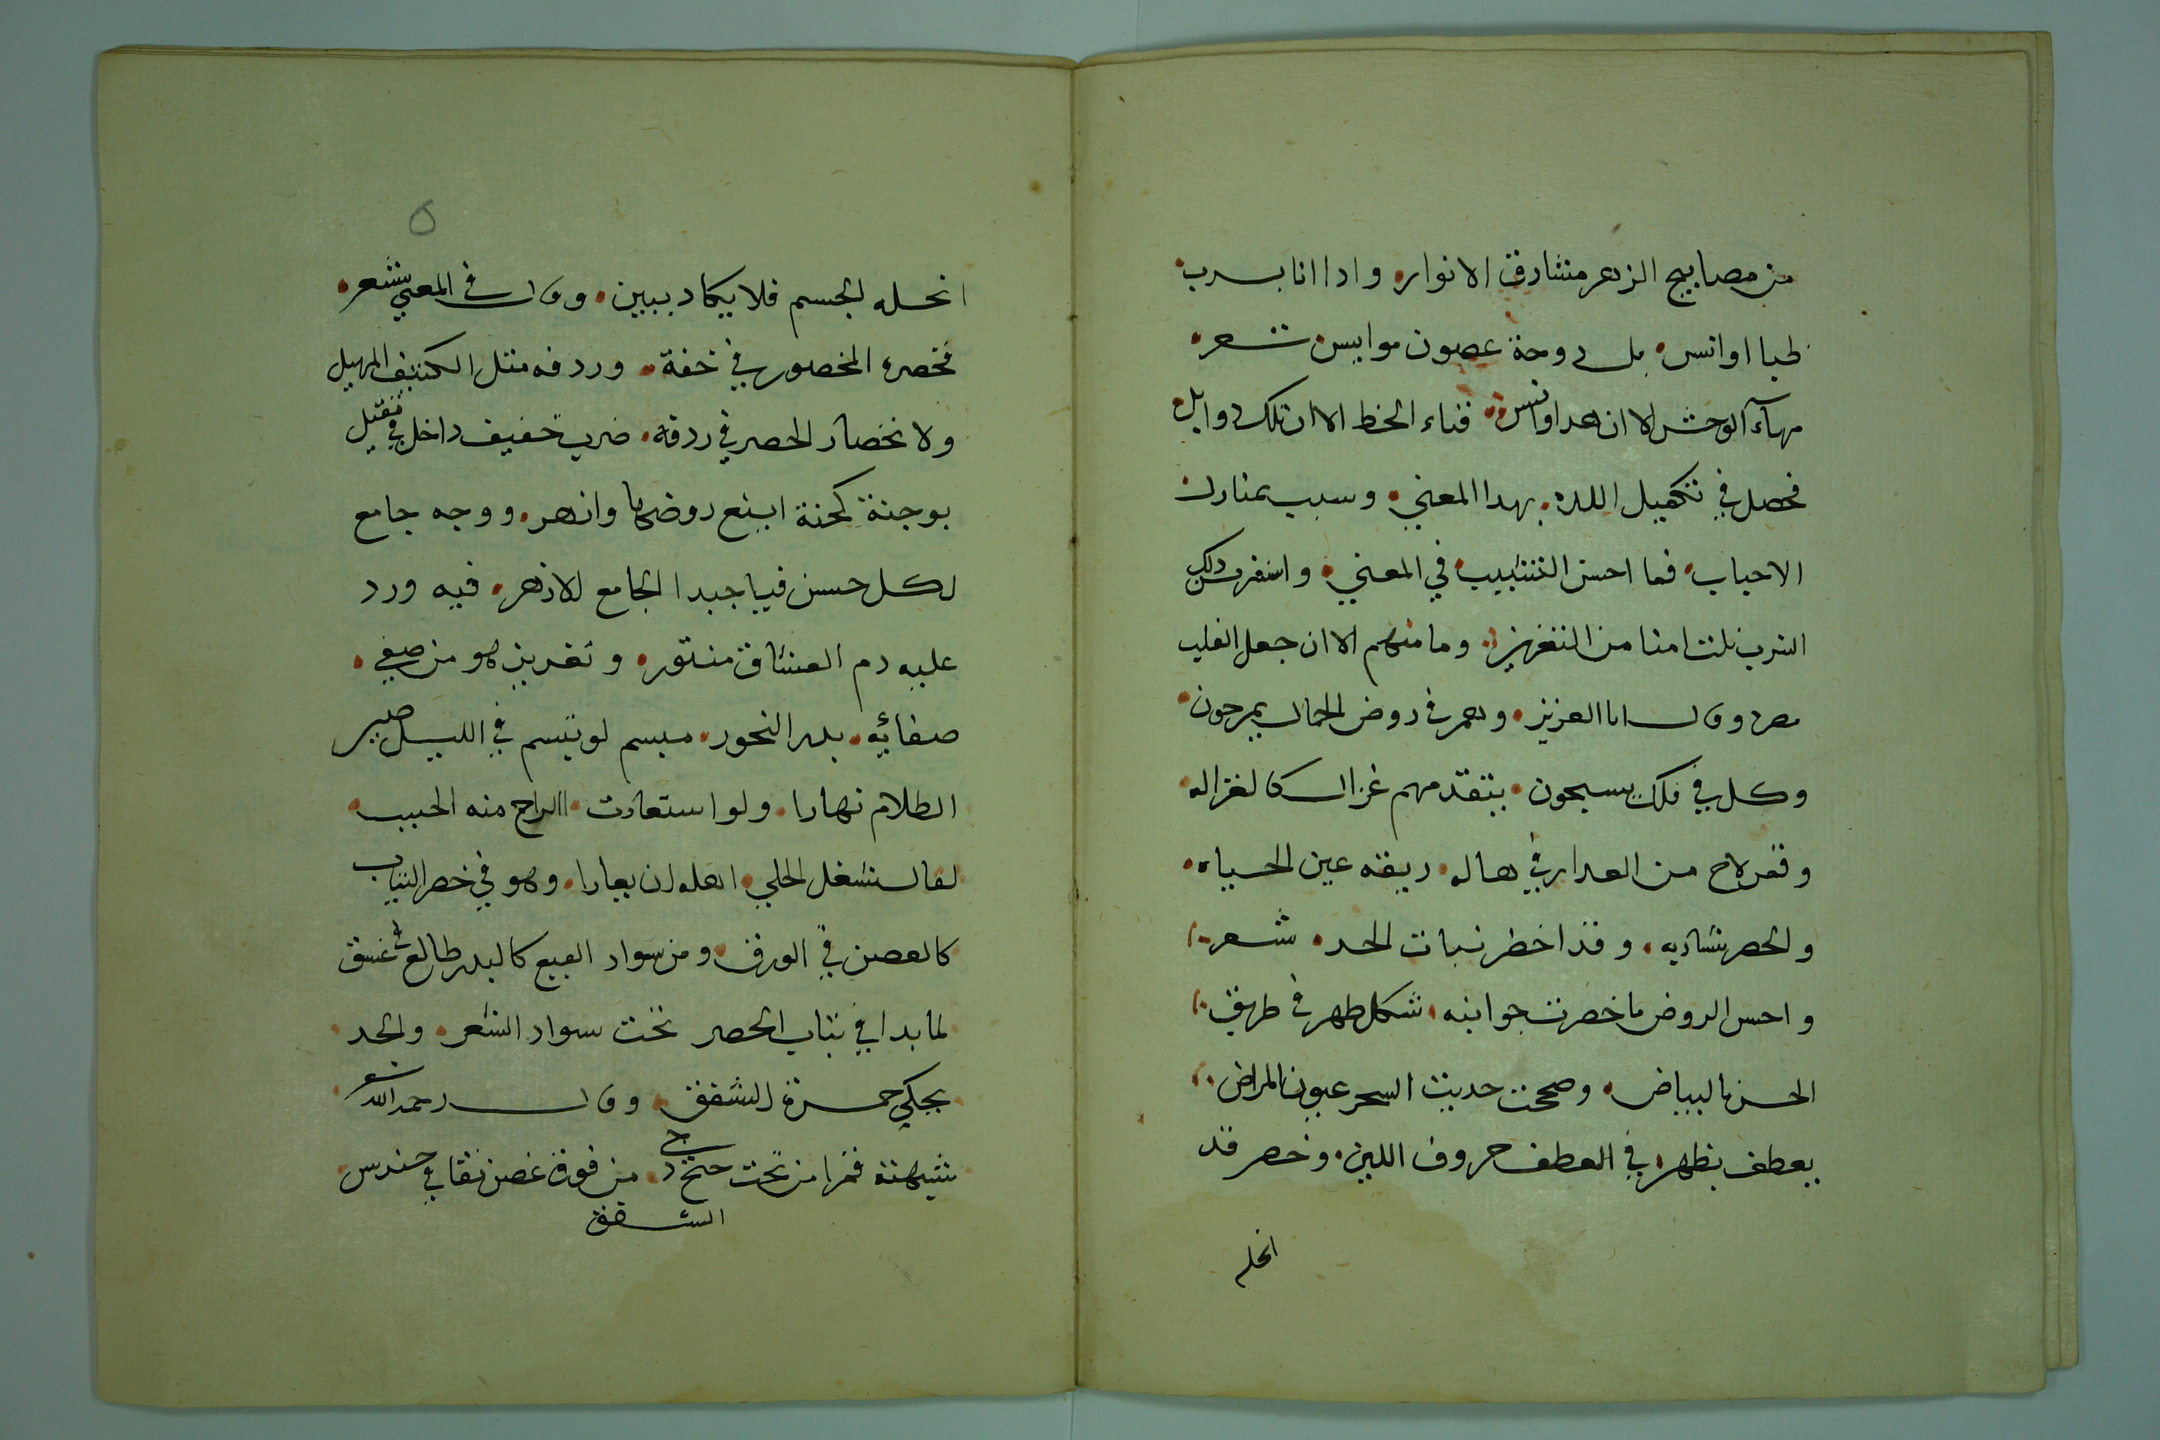 من مصابيح الزهر مشارق الانوار، واذا انا بسرب
ظبا اوانس، بل دوحة غصون موايس شعر،
مهاء الوحش الا ان هذا اوانس، قناء الخط الا ان تلك ذوابل
فحصل في تكميل اللذة، بهذا المعني، وسبب بمنازل
الاحباب، فما احسن التشبيب في المعني، واسفر ذلك
السرب ثلت امنا من التغرير، وما منهم الا ان جعل القلب
مصره وقال انا العزيز، وهم في روض الجمال يمرحون
وكل في فلك يسبحون، يتقدمهم غزال كالغزاله
وقمر لاح من العذار في هاله، ريقه عين الحياه،
والخضر شاربه، وقد اخضر نبات الخد، شعر
واحسن الروض ما خضرت جوانبه، شكل ظهر في طريق
الحسن بالبياض، وصححت حديث السحر عيونه المراض
بعطف يظهر في العطف حروف اللين، وخصر قد
انحله
٥
انحله الجسم فلا يكاد يبين، وقال في المعني شعر،
فخصره المخصور في خفة، وردفه مثل الكثيف المهيل
ولانخصار الخصر في ردفه، ضرب خفيف داخل في ثقيل
بوجنة كجنة اينع روضها وازهر، ووجه جامع
لكل حسن فيا حبذا الجامع الازهر، فيه ورد
عليه دم العشاق منثور، وتغريز هو من صفي
صفائيه، بدر النحور، مبسم لو تبسم في الليل صير
الظلام نهارا، ولو استعارت الراح منه الحبب
لقال شغل الحلي اهله ان يعارا، وهو في خضر الثياب
كالغصن في الورق، ومن سواد الفرع كالبدر طالع في غسق
لما بدا في ثياب الخضر تحت سواد الشعر، والخد
يحكي حمرة الشفق، وقال رحمه الله شعر
شبهته قمرا من تحت جنح دجى، من فوق غصن نقا في حندس
الشفق